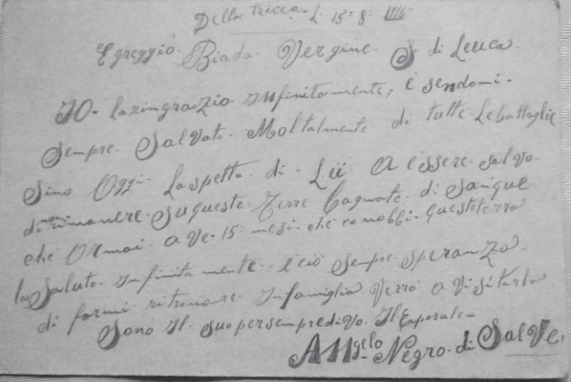 Della tricea. Li 15 8 1916
Egreggio. Biada. Vergine. S. di Leuca
IO. Laringrazio Infinitamente, e sendomi.
Sempre Salvato. Moltalmente di tutte. Lebattaglie
Sino Oggi. Laspetto. di. Lii a lessere. salvo.
di rimanere. Su queste. Terre Bagnate. di Sangue
che Ormai. a ve. 15 mesi. che conobbi. Questeterra
la Saluto. Infinitamente. e ciò sempre. speranza.
di farmi ritrovare. Infamiglia Verrò a Visitarla
Sono Il Suo persempre divo. Il Caporale
Angelo Negro. di Salve.